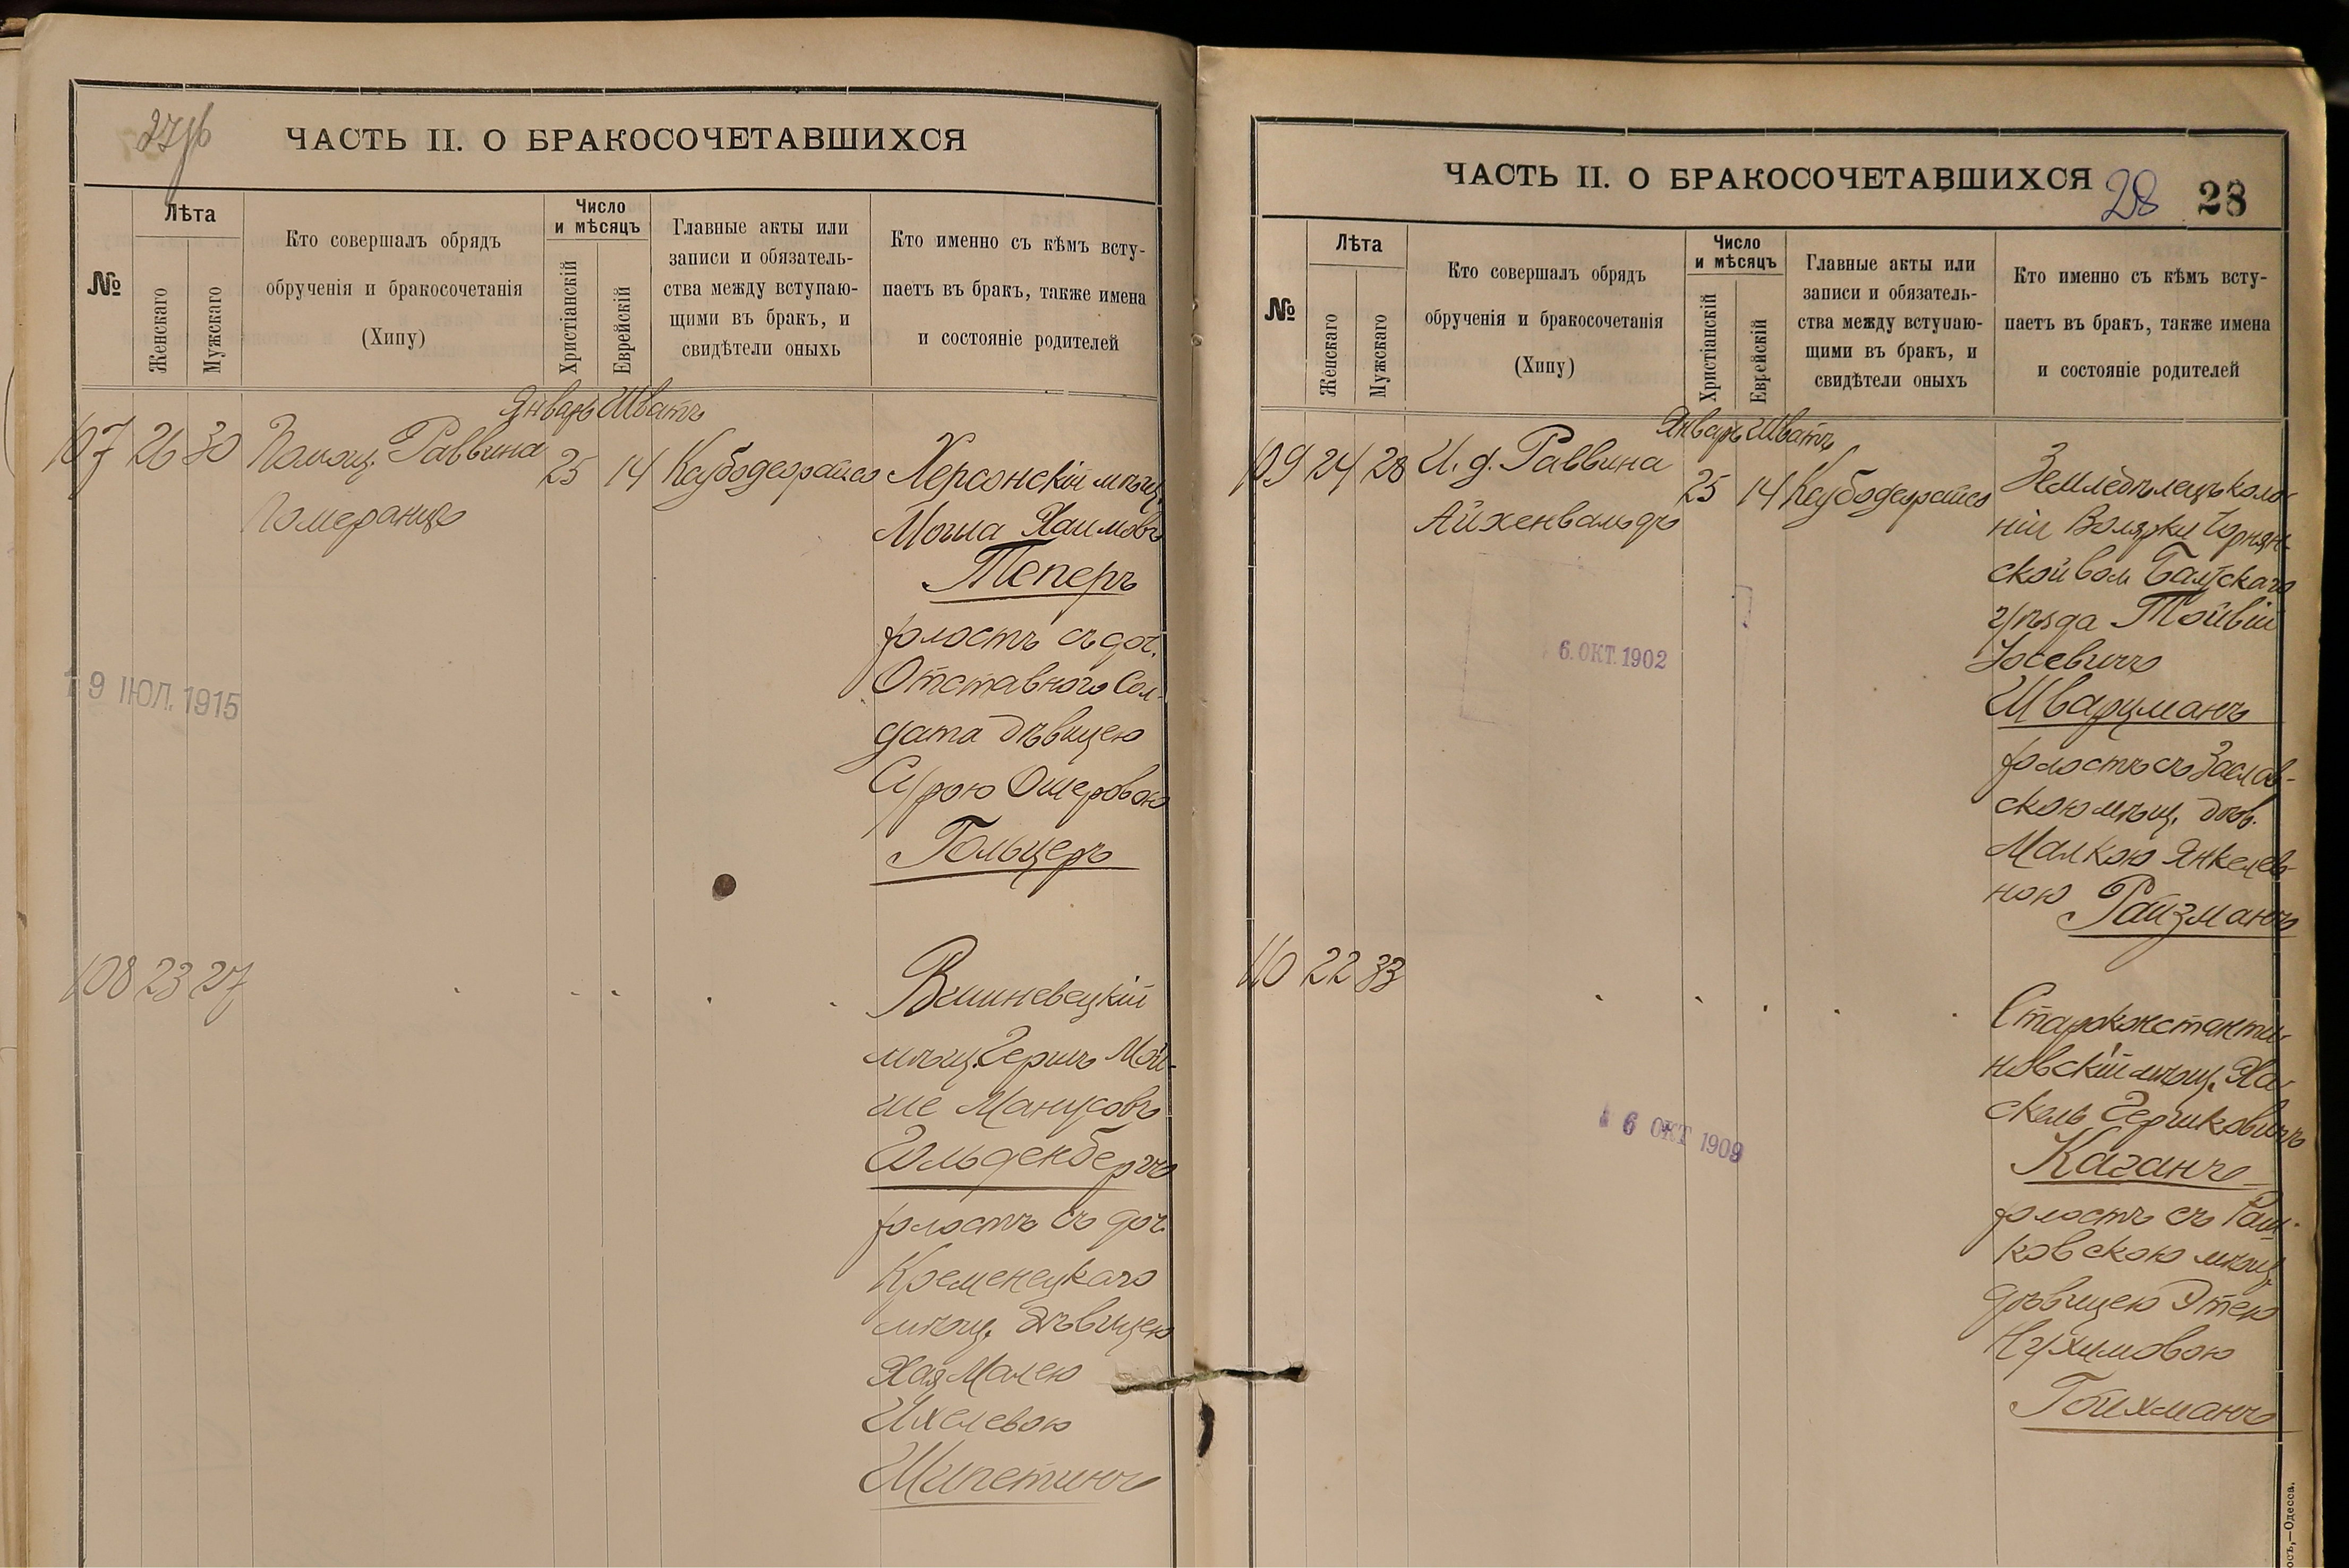 27об
ЧАСТЬ II. О БРАКОСОЧЕТАВШИХСЯ
№
Лѣта
Женскаго
Мужскаго
Кто совершалъ обрядъ
обрученія и бракосочетанія
(Хипу)
Число
и мѣсяцъ
Христіанскій
Еврейскій
Главные акты или
записи и обязатель-
ства между вступаю-
щими въ бракъ, и
свидѣтели оныхъ
Кто именно съ кѣмъ всту-
паетъ въ бракъ, также имена
и состояніе родителей
Январь Шватъ
107 26 30 Помощ. Раввина 25 14
Померанцъ
Херсонскій мѣщ.
Мошка Хаимовъ
Теперъ
холостъ съ доч.
Отставного Сол-
дата дѣвицею
Сурою Ошеровою
Гольцеръ
19 ІЮЛ. 1915
108 23 27
Вишневецкій
мѣщ. Гершъ Мой-
ше Манусовъ
Гольденбергъ
холостъ съ доч.
Кременецкаго
мѣщ. дѣвицею
Хая Малею
Ихелевою
Шпетинъ
ЧАСТЬ II. О БРАКОСОЧЕТАВШИХСЯ
28 28
№
Лѣта
Женскаго
Мужскаго
Кто совершалъ обрядъ
обрученія и бракосочетанія
(Хипу)
Число
и мѣсяцъ
Христіанскій
Еврейскій
Главные акты или
записи и обязатель-
ства между вступаю-
щими въ бракъ, и
свидѣтели оныхъ
Кто именно съ кѣмъ всту-
паетъ въ бракъ, также имена
и состояніе родителей
Январь Шватъ
109 24 28 И. д. Раввина 25 14
Айхенвальдъ
Земледѣлецъ коло-
ніи Волярки Чорнян-
ской вол. Балтскаго
уѣзда Тойвій
Іосевичъ
Шварцманъ
холостъ съ Заслав-
скою мѣщ. дѣв.
Малкою Янкелев-
ною Райзманъ
6. ОКТ. 1902
110 22 33
Староконстанти-
новскій мѣщ. Ха-
скель Гершковичъ
Каганъ
холостъ съ Раш-
ковскою мѣщ.
дѣвицею Этею
Нухимовою
Гойхманъ
6 ОКТ 1909
Одесса.